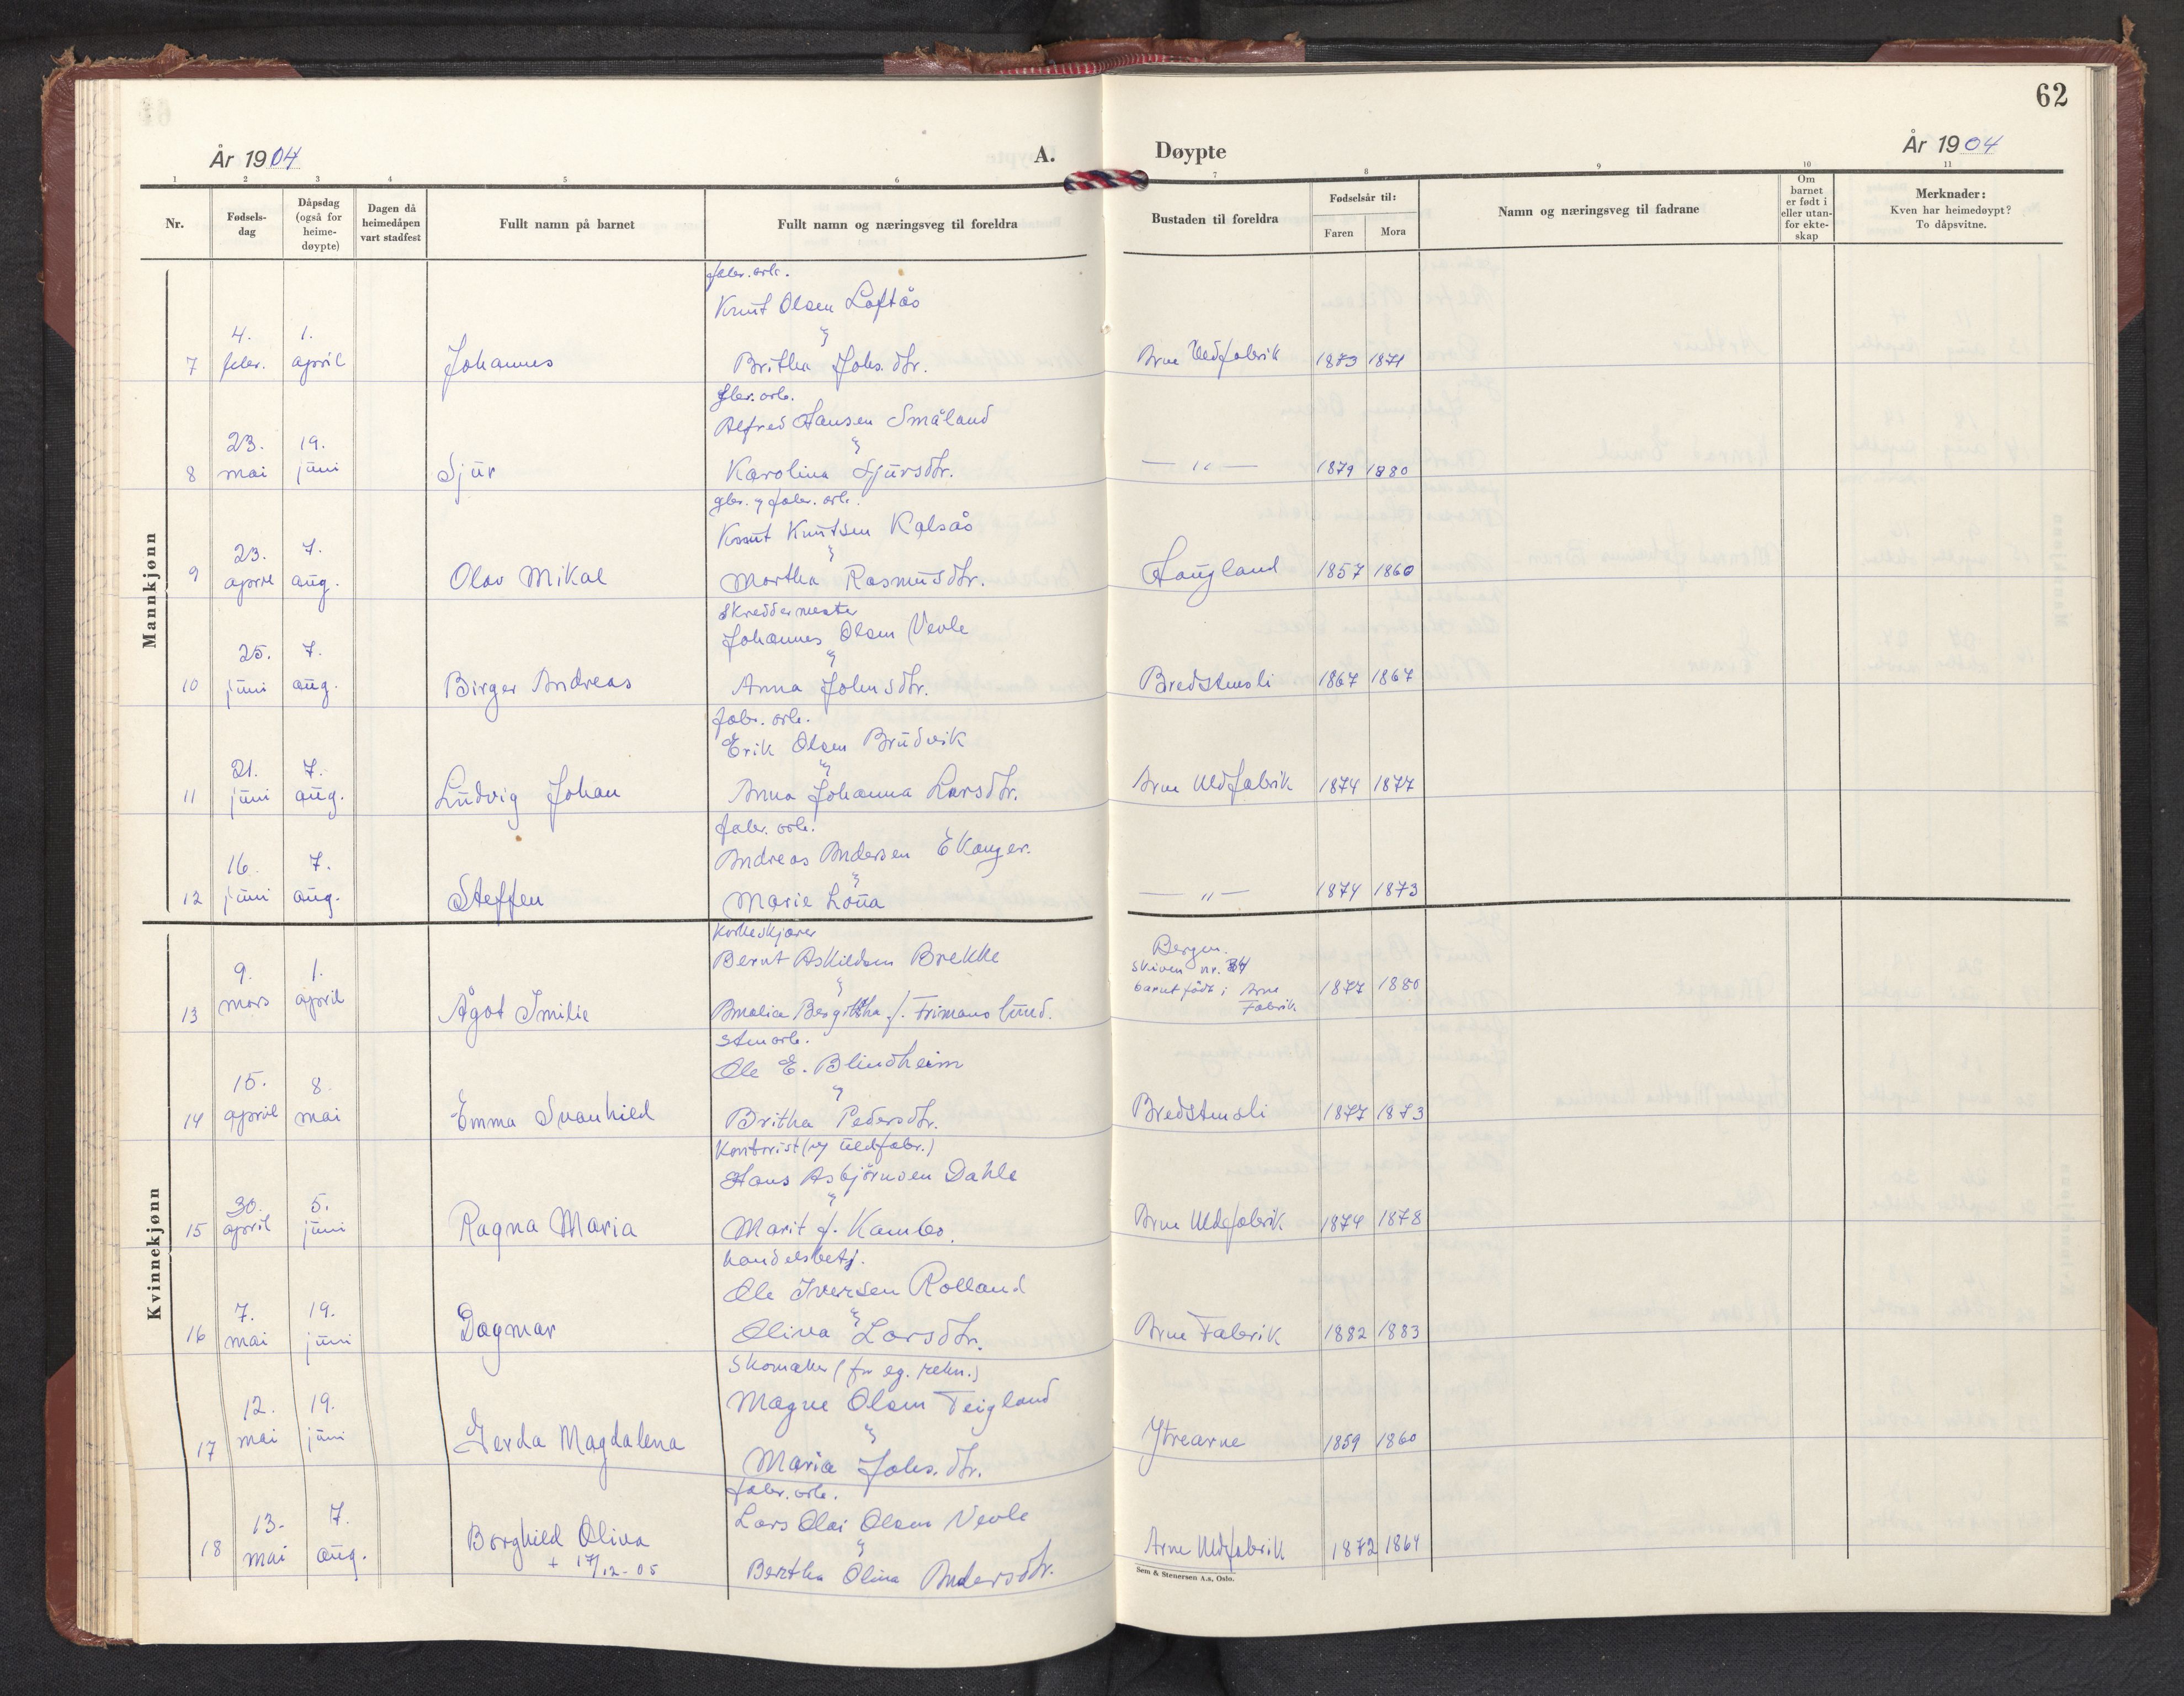 62
År 1904
A.
Døypte
År 1904
1 2 3 4 5 6 7 8 9 10 11
Nr.
Fødsels-
dag
Dåpsdag
(også for
heime-
døypte)
Dagen då
heimedåpen
vart stadfest
Fullt namn på barnet
Fullt namn og næringsveg til foreldra
Bustaden til foreldra
Fødselsår til:
Faren Mora
Namn og næringsveg til fadrane
Om
barnet
er født i
eller utan-
for ekte-
skap
Merknader:
Kven har heimedøypt?
To dåpsvitne.
Mannkjønn
fabr. arb.
Knut Olsen Loftås
4. 1.
7 febr. april Johannes Britha Johs. dtr. Arne Uldfabrik 1873 1871
fbr. arb.
Alfred Hansen Småland
23. 19.
8 mai juni Sjur Karolina Sjursdtr. — " — 1879 1880
gbr. og fabr. arb.
Knut Knutsen Kalsås
23. 7.
9 april aug. Olav Mikal Martha Rasmusdtr. Haugland 1857 1860
Skreddermester
Johannes Olsen Vevle
25. 7.
10 juni aug. Birger Andreas Anna Johnsdtr. Bredstensli 1867 1867
fabr. arb.
Erik Olsen Brudvik
21. 7.
11 juni aug. Ludvig Johan Anna Johanna Larsdtr. Arne Uldfabrik 1874 1877
fabr. arb.
Andreas Andersen Ekanger.
16. 7.
12 juni aug. Steffen Marie Lona — " — 1874 1873
Kvinnekjønn
Korkeskjærer
Bernt Askildsen Brekke Bergen.
9. 1. Skiven nr. 34
13 mars april Ågot Emilie Amalia Bergittha f. Frimanslund. barnet födt i Arne Fabrik 1877 1880
Stenarb.
Ole E. Blindheim
15. 8.
14 april mai Emma Svanhild Britha Pedersdtr. Bredstensli 1877 1873
Kontorist (v uldfabr.)
Hans Asbjörnsen Dahle
30. 5.
15 april juni Ragna Maria Marit f. Kambo. Arne Uldfabrik 1874 1878
handelsbetj.
Ole Iversen Rolland
7. 19.
16 mai juni Dagmar Oliva Larsdtr. Arne Fabrik 1882 1883
Skomaker (for eg. rekn.)
Magne Olsen Teigland
12. 19.
17 mai juni Gerda Magdalena Maria Johs. dtr. Ytrearne 1859 1860
fabr. arb.
Lars Olai Olsen Vevle
13. 7.
18 mai aug. Borghild Oliva Bertha Olina Andersdtr. Arne Uldfabrik 1872 1864
+ 17/12-05
Sem & Stenersen A.s, Oslo.